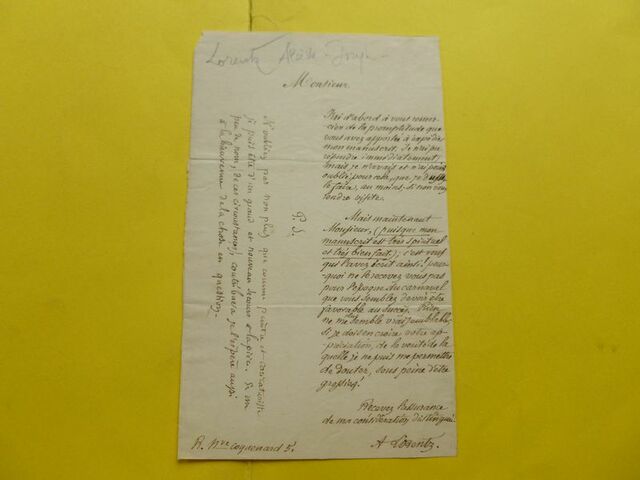 Lorentz Alcide - Joseph
Monsieur
J'ai d'abord à vous remer-
cier de la promptitude que
vous avez apportée à
mon manuscrit. Je n'ai pu
répondre immédiatement
mais je n'avais et n'ai point
oublié pour cela, que je dusse
le faire, au moins, si non vous
rendre visite.
Mais maintenant
Monsieur, (puisque mon
manuscrit est très spirituel
et très bien fait); c'est vous
qui l'avez écrit ainsi! pour-
quoi ne le recevez vous pas
pour l'époque du carnaval
que vous semblez devoir être
favorable au succès.
ne me semble vraisemblable,
si je dois en croire votre ap-
préciation, de la vérité de la
quelle je ne puis me permettre
de douter, sous peine d'être
Recevez l'assurance
de ma considération distinguée.
A Lorentz
P. S.
N'oubliez pas non plus que comme peintre et caricaturiste
je puis être d'un grand et nouveau secours à la pièce. Et un
peu de nom, de ces circonstances, contribuera je l'espère aussi
à la bienvenue de la chose en question.
R. Nve coquenard 5.